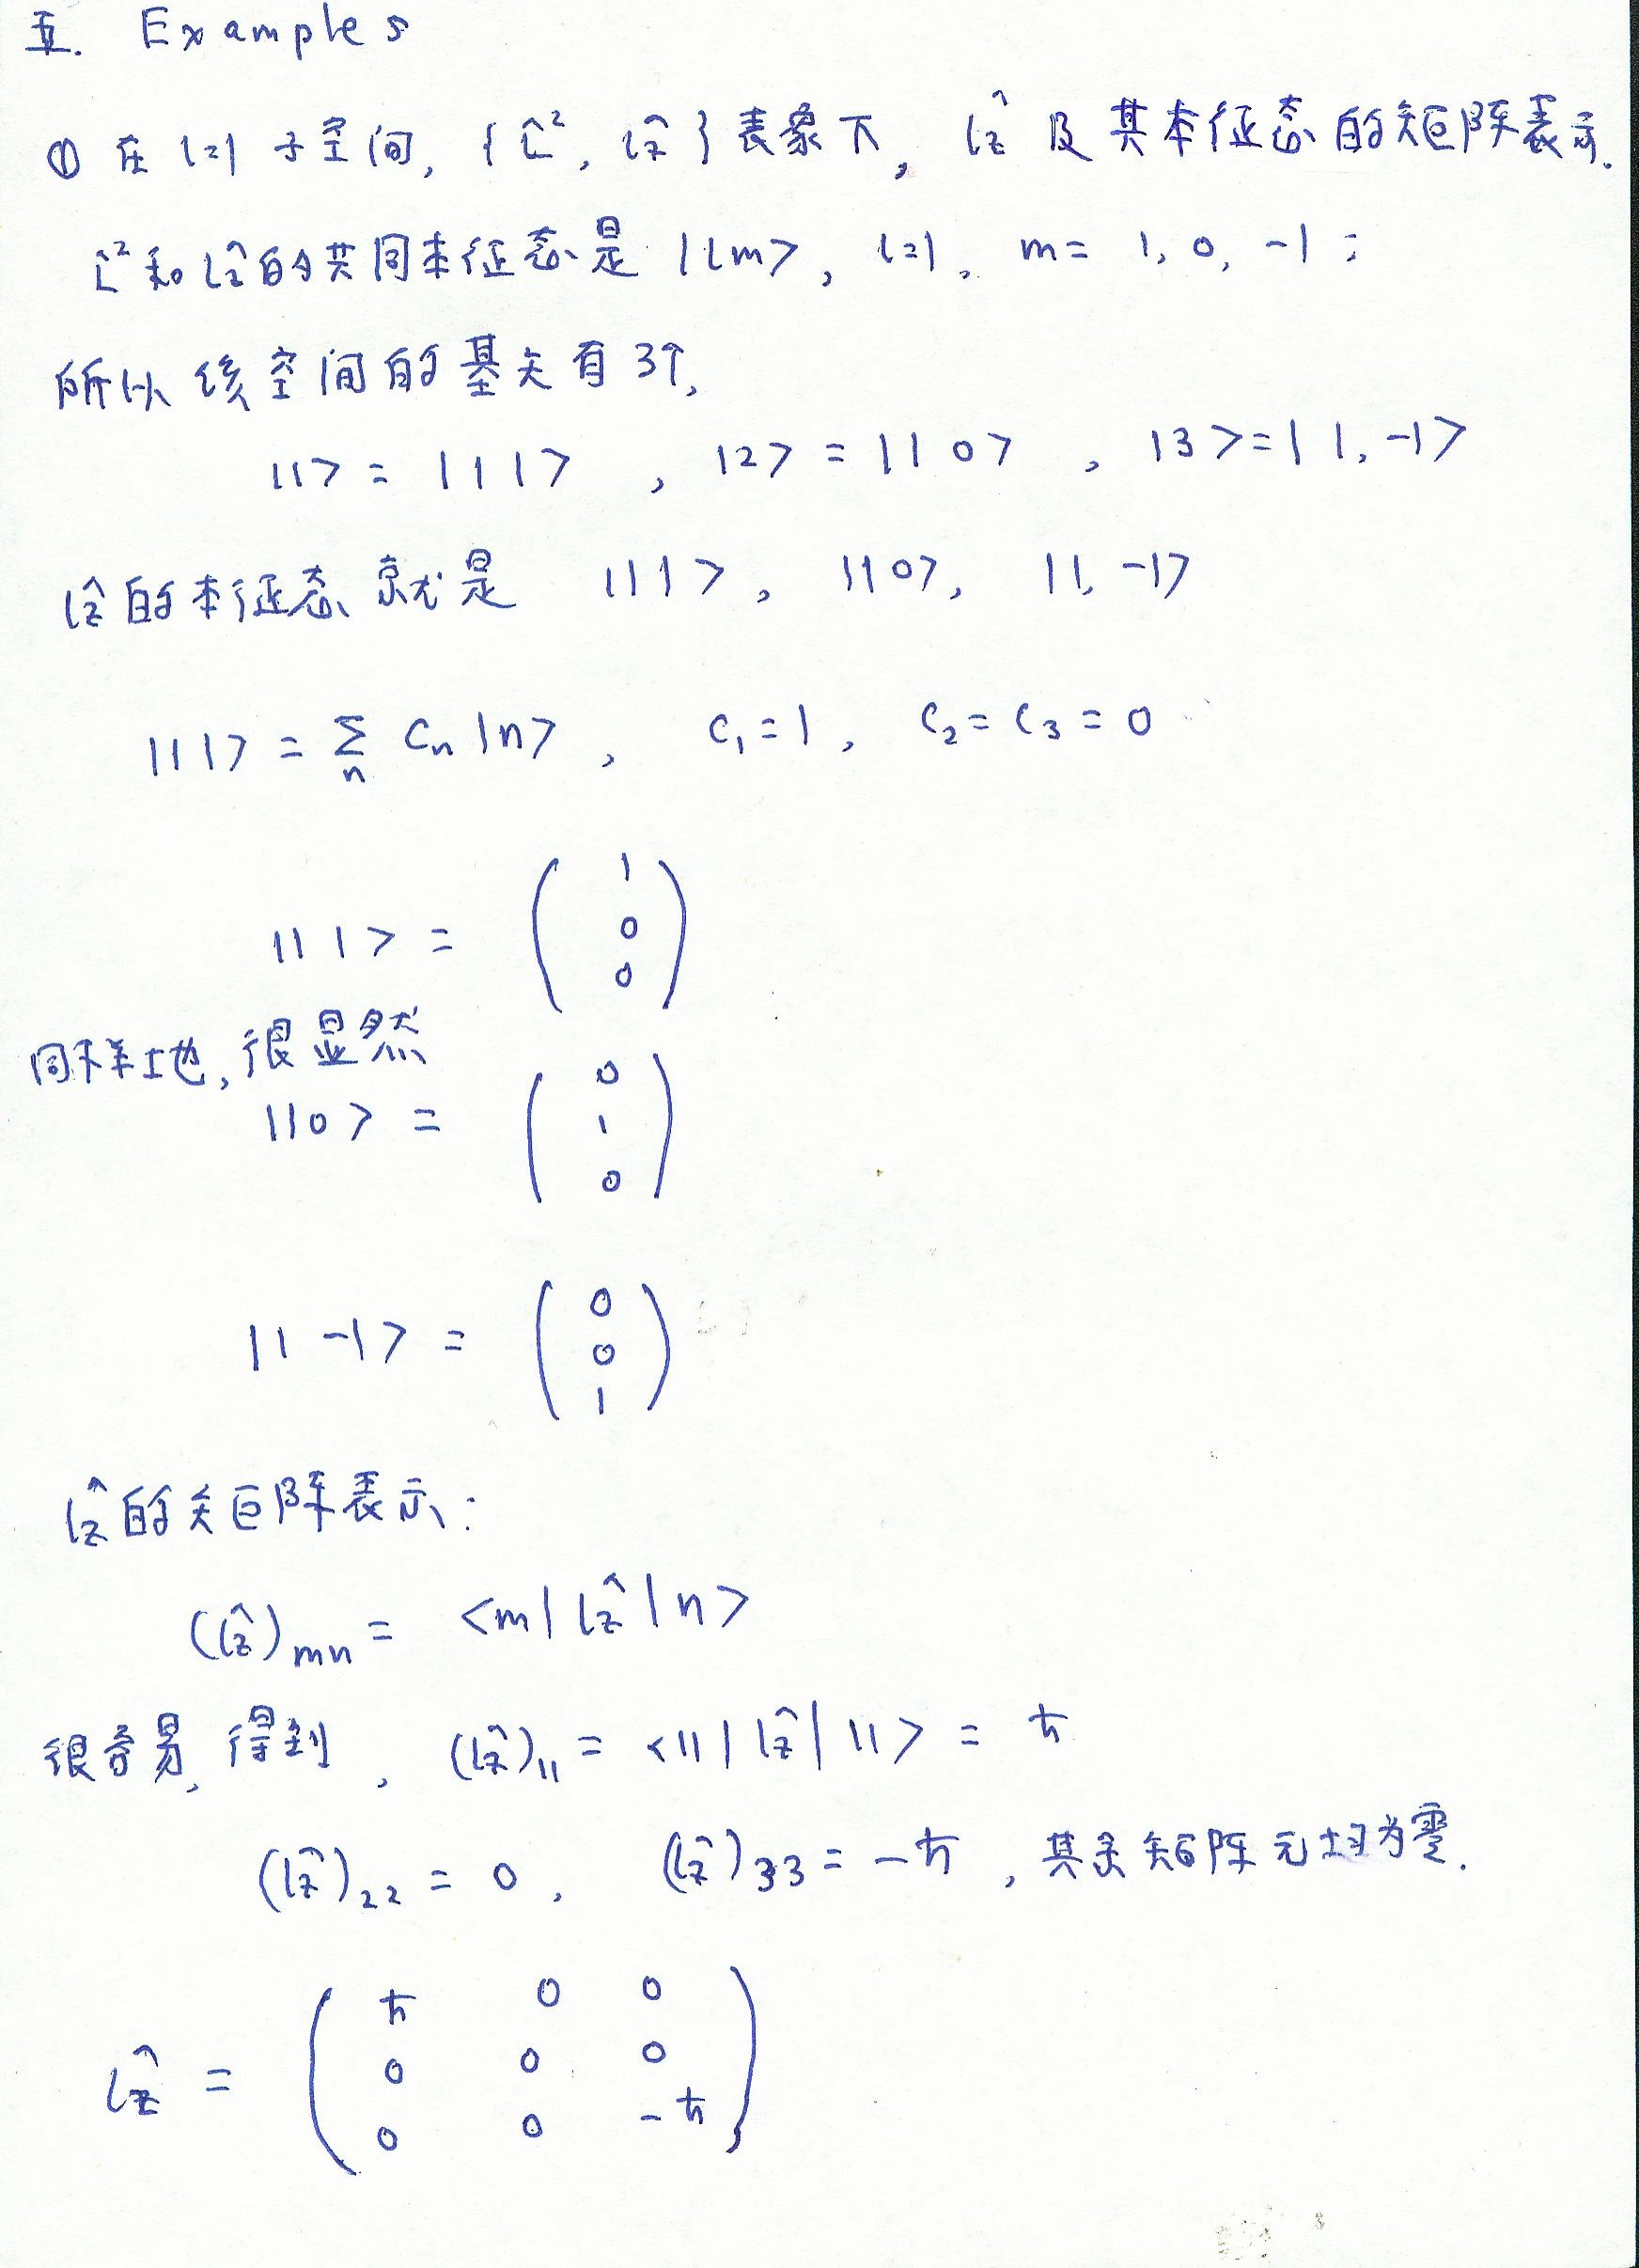 五. Examples
① 在 l=1 子空间, {L̂², l̂z} 表象下, l̂z 及其本征态的矩阵表示.
L̂²和l̂z的共同本征态是 |lm>, l=1, m= 1, 0, -1;
所以该空间的基矢有3个,
|1> = |11> , |2> = |10> , |3>=|1,-1>
l̂z的本征态就是 |11>, |10>, |1,-1>
|11> = Σₙ Cₙ|n>, C₁=1, C₂=C₃=0
|11> = (1 0 0)
同样地,很显然
|10> = (0 1 0)
|1 -1> = (0 0 1)
l̂z的矩阵表示:
(l̂z)mn = <m|l̂z|n>
很容易,得到, (l̂z)₁₁ = <11|l̂z|11> = ħ
(l̂z)₂₂ = 0, (l̂z)₃₃ = -ħ, 其余矩阵元均为零.
ħ 0 0
l̂z = 0 0 0
0 0 -ħ